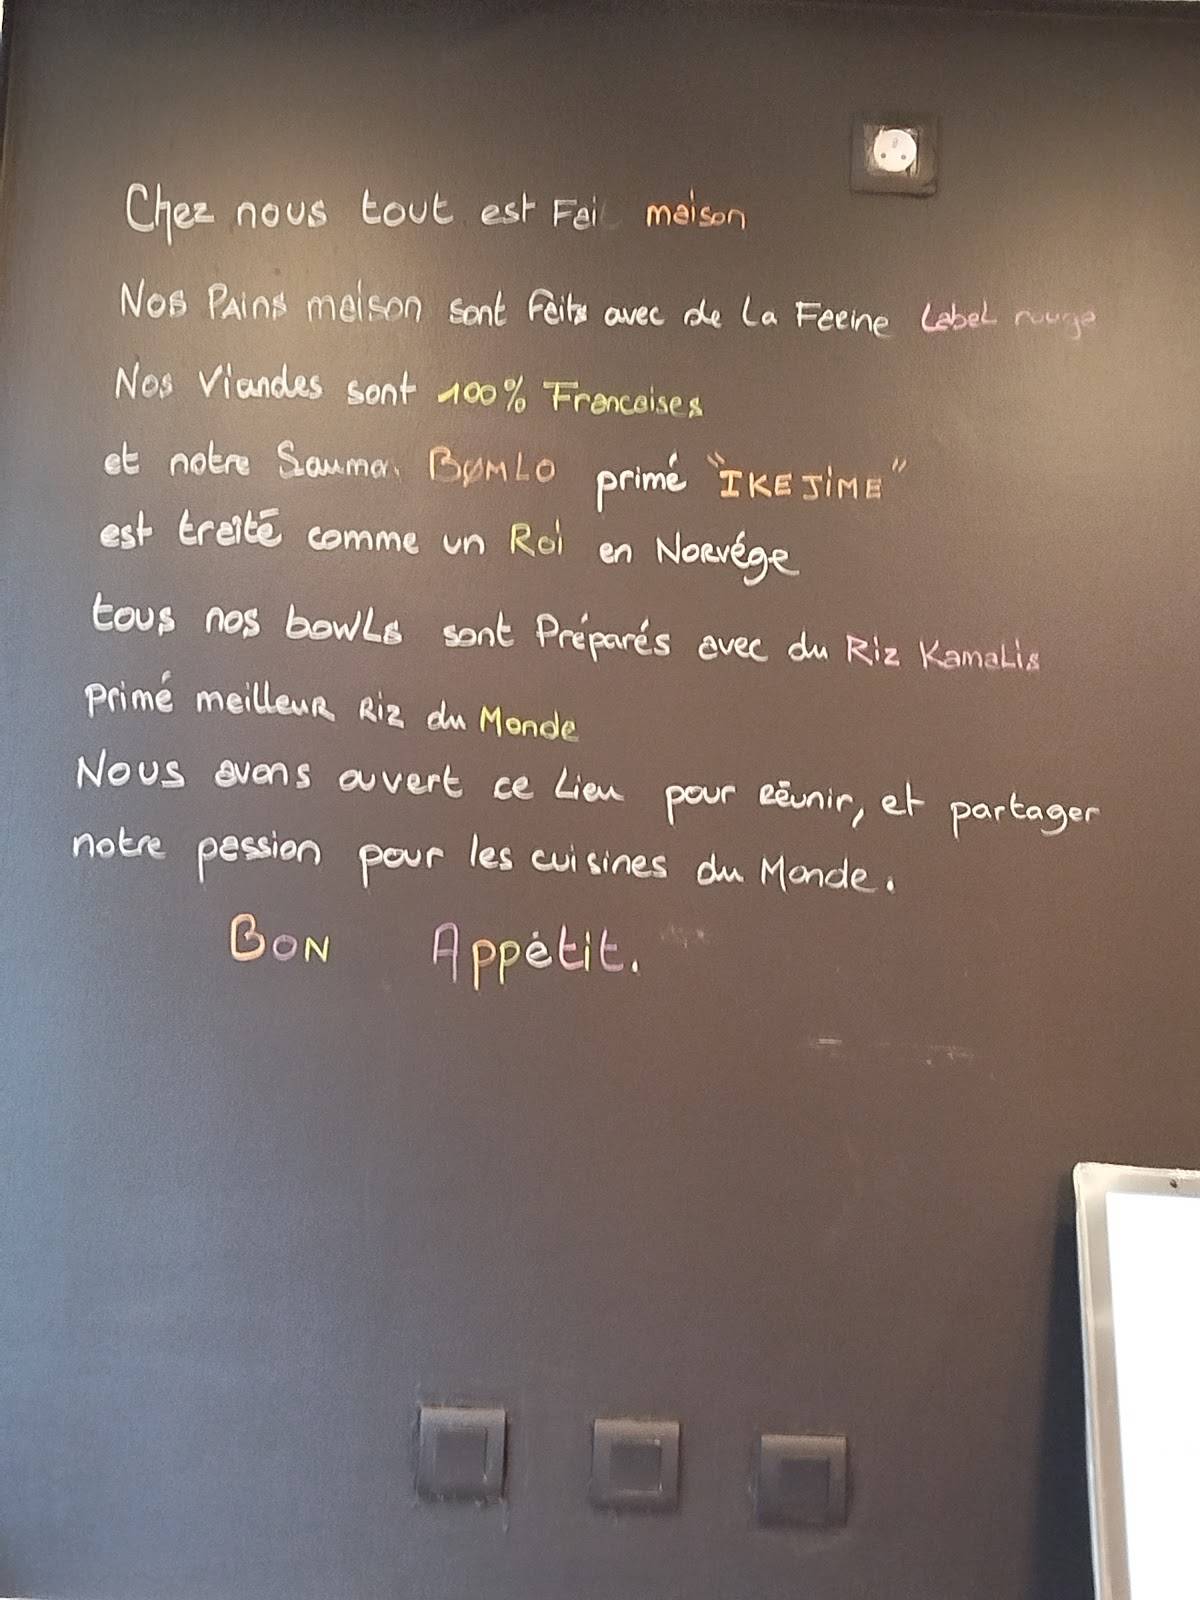 Chez nous tout est Fai maison
Nos PAins maison sont faits avec de la Farine Label rouge
Nos Viandes sont 100% Francaises
et notre Sauma BØMLO primé "IKEJIME"
est traîté comme un Roi en Norvége
tous nos bowls sont Préparés avec du Riz Kamalis
Primé meilleur Riz du Monde
Nous avons ouvert ce Lieu pour Réunir, et partager
notre passion pour les cuisines du Monde.
Bon Appétit.